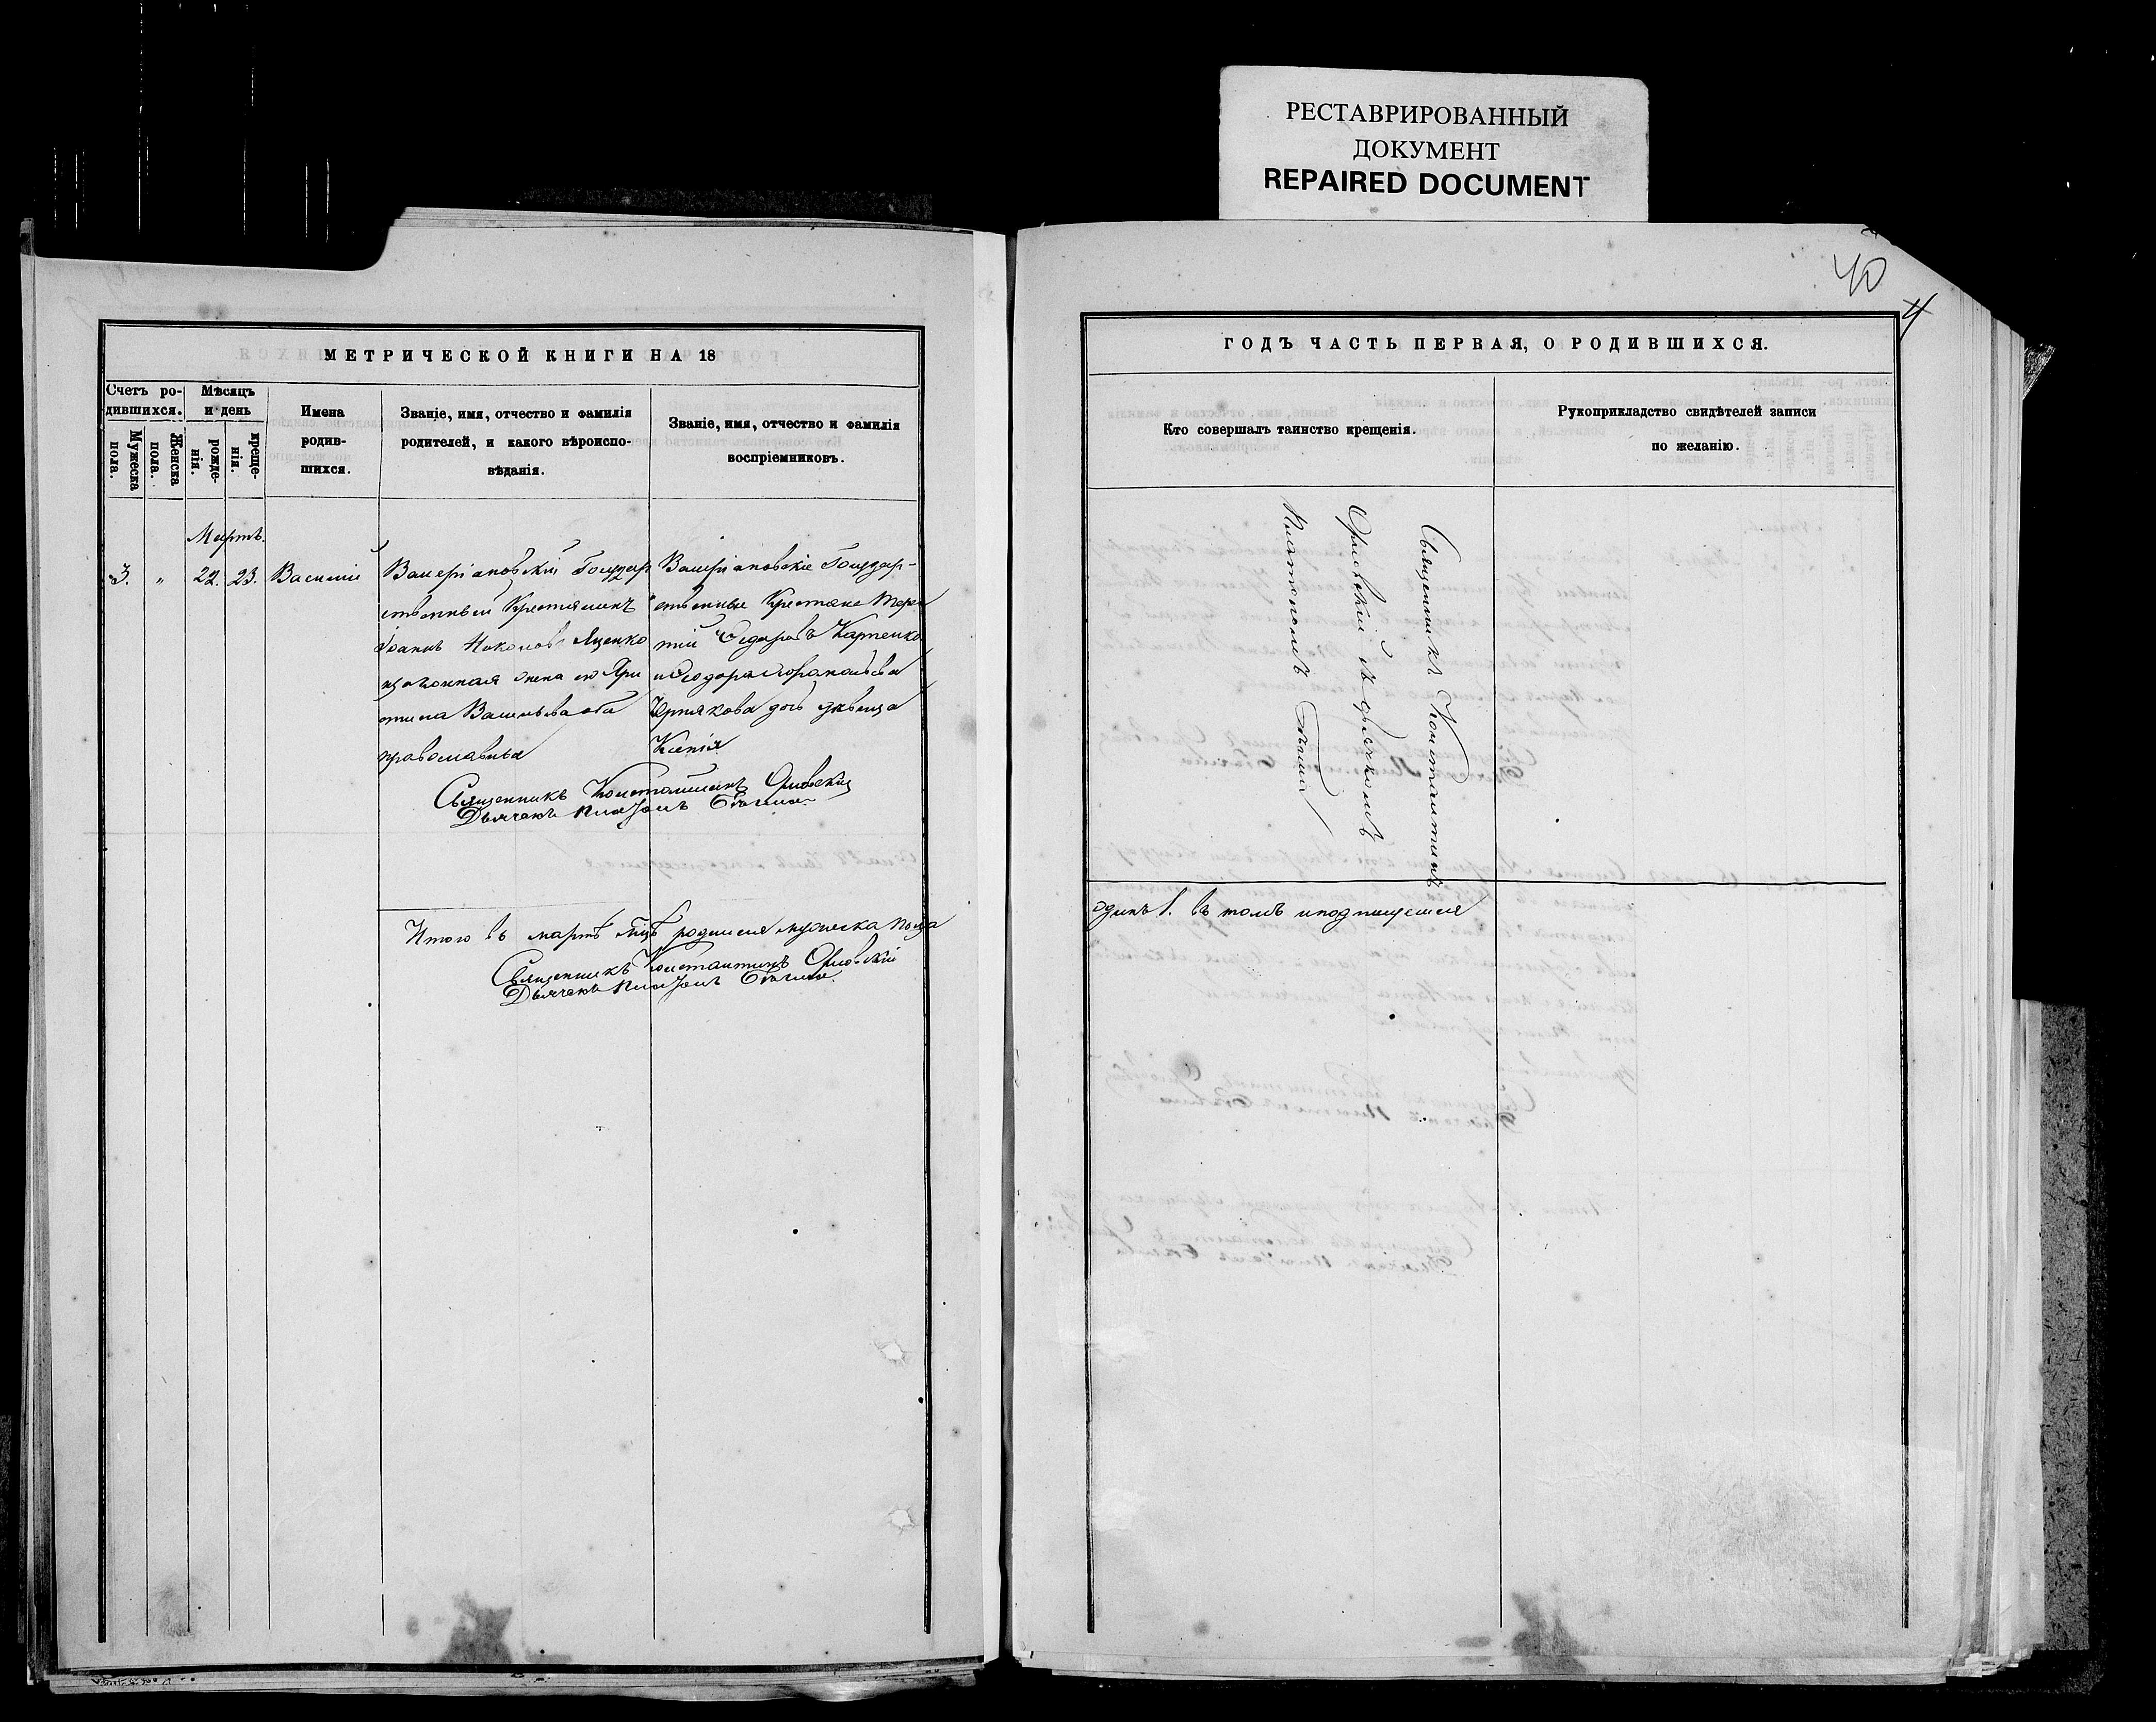 РЕСТАВРИРОВАННЫЙ
ДОКУМЕНТ
REPAIRED DOCUMENT
МЕТРИЧЕСКОЙ КНИГИ НА 18
Счетъ ро-
дившихся.
Мужеска
пола.
Женска
пола.
Мѣсяцъ
и день
рожде-
нія.
креще-
нія.
Имена
родив-
шихся.
Званіе, имя, отчество и фамилія
родителей, и какого вѣроиспо-
вѣданія.
Званіе, имя, отчество и фамилія
воспріемниковъ.
Мартъ.
3. „ 22. 23. Василій
Валеріановскій Государ
ственный Крестянинъ
Іоаннъ Никоновъ Яценко
и законная жена его Хри
стина Васильева оба
православные
Валеріановскіе Государ-
ственные Крестяне
тій Федоровъ Карпенко
и Феодора
дочь девица
Ксенія
Священникъ Константинъ Орловскій
Дьячекъ Платонъ
Итого въ мартѣ мцѣ родился мужеска пола
Священникъ Константинъ Орловскій
Дьячекъ Платонъ
40
4
ГОДЪ ЧАСТЬ ПЕРВАЯ, О РОДИВШИХСЯ.
Кто совершалъ таинство крещенія.
Рукоприкладство свидѣтелей записи
по желанію.
Священникъ Константинъ
Орловскій съ дьячкомъ
Платономъ
одинъ 1. въ томъ и подпишемся